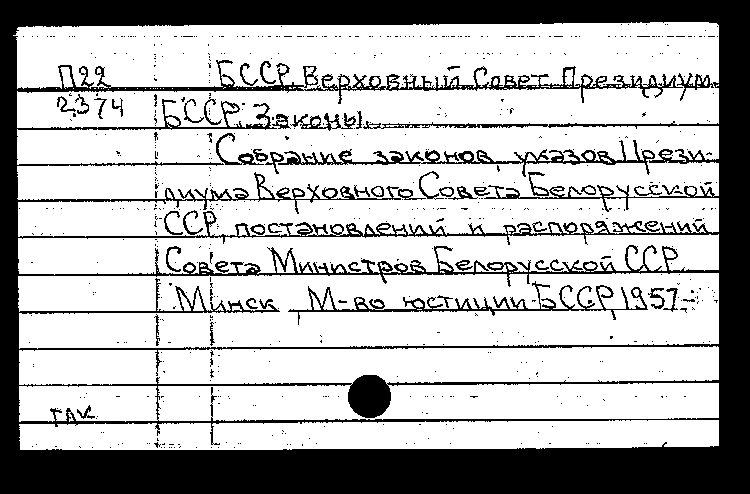 П22 БССР. Верховный Совет. Президиум.
2374 БССР. Законы.
Собрание законов, указов Прези-
диума Верховного Совета Белорусской
ССР, постановлений и распоряжений
Совета Министров Белорусской ССР.
Минск, М-во юстиции БССР, 1957-
ГАК